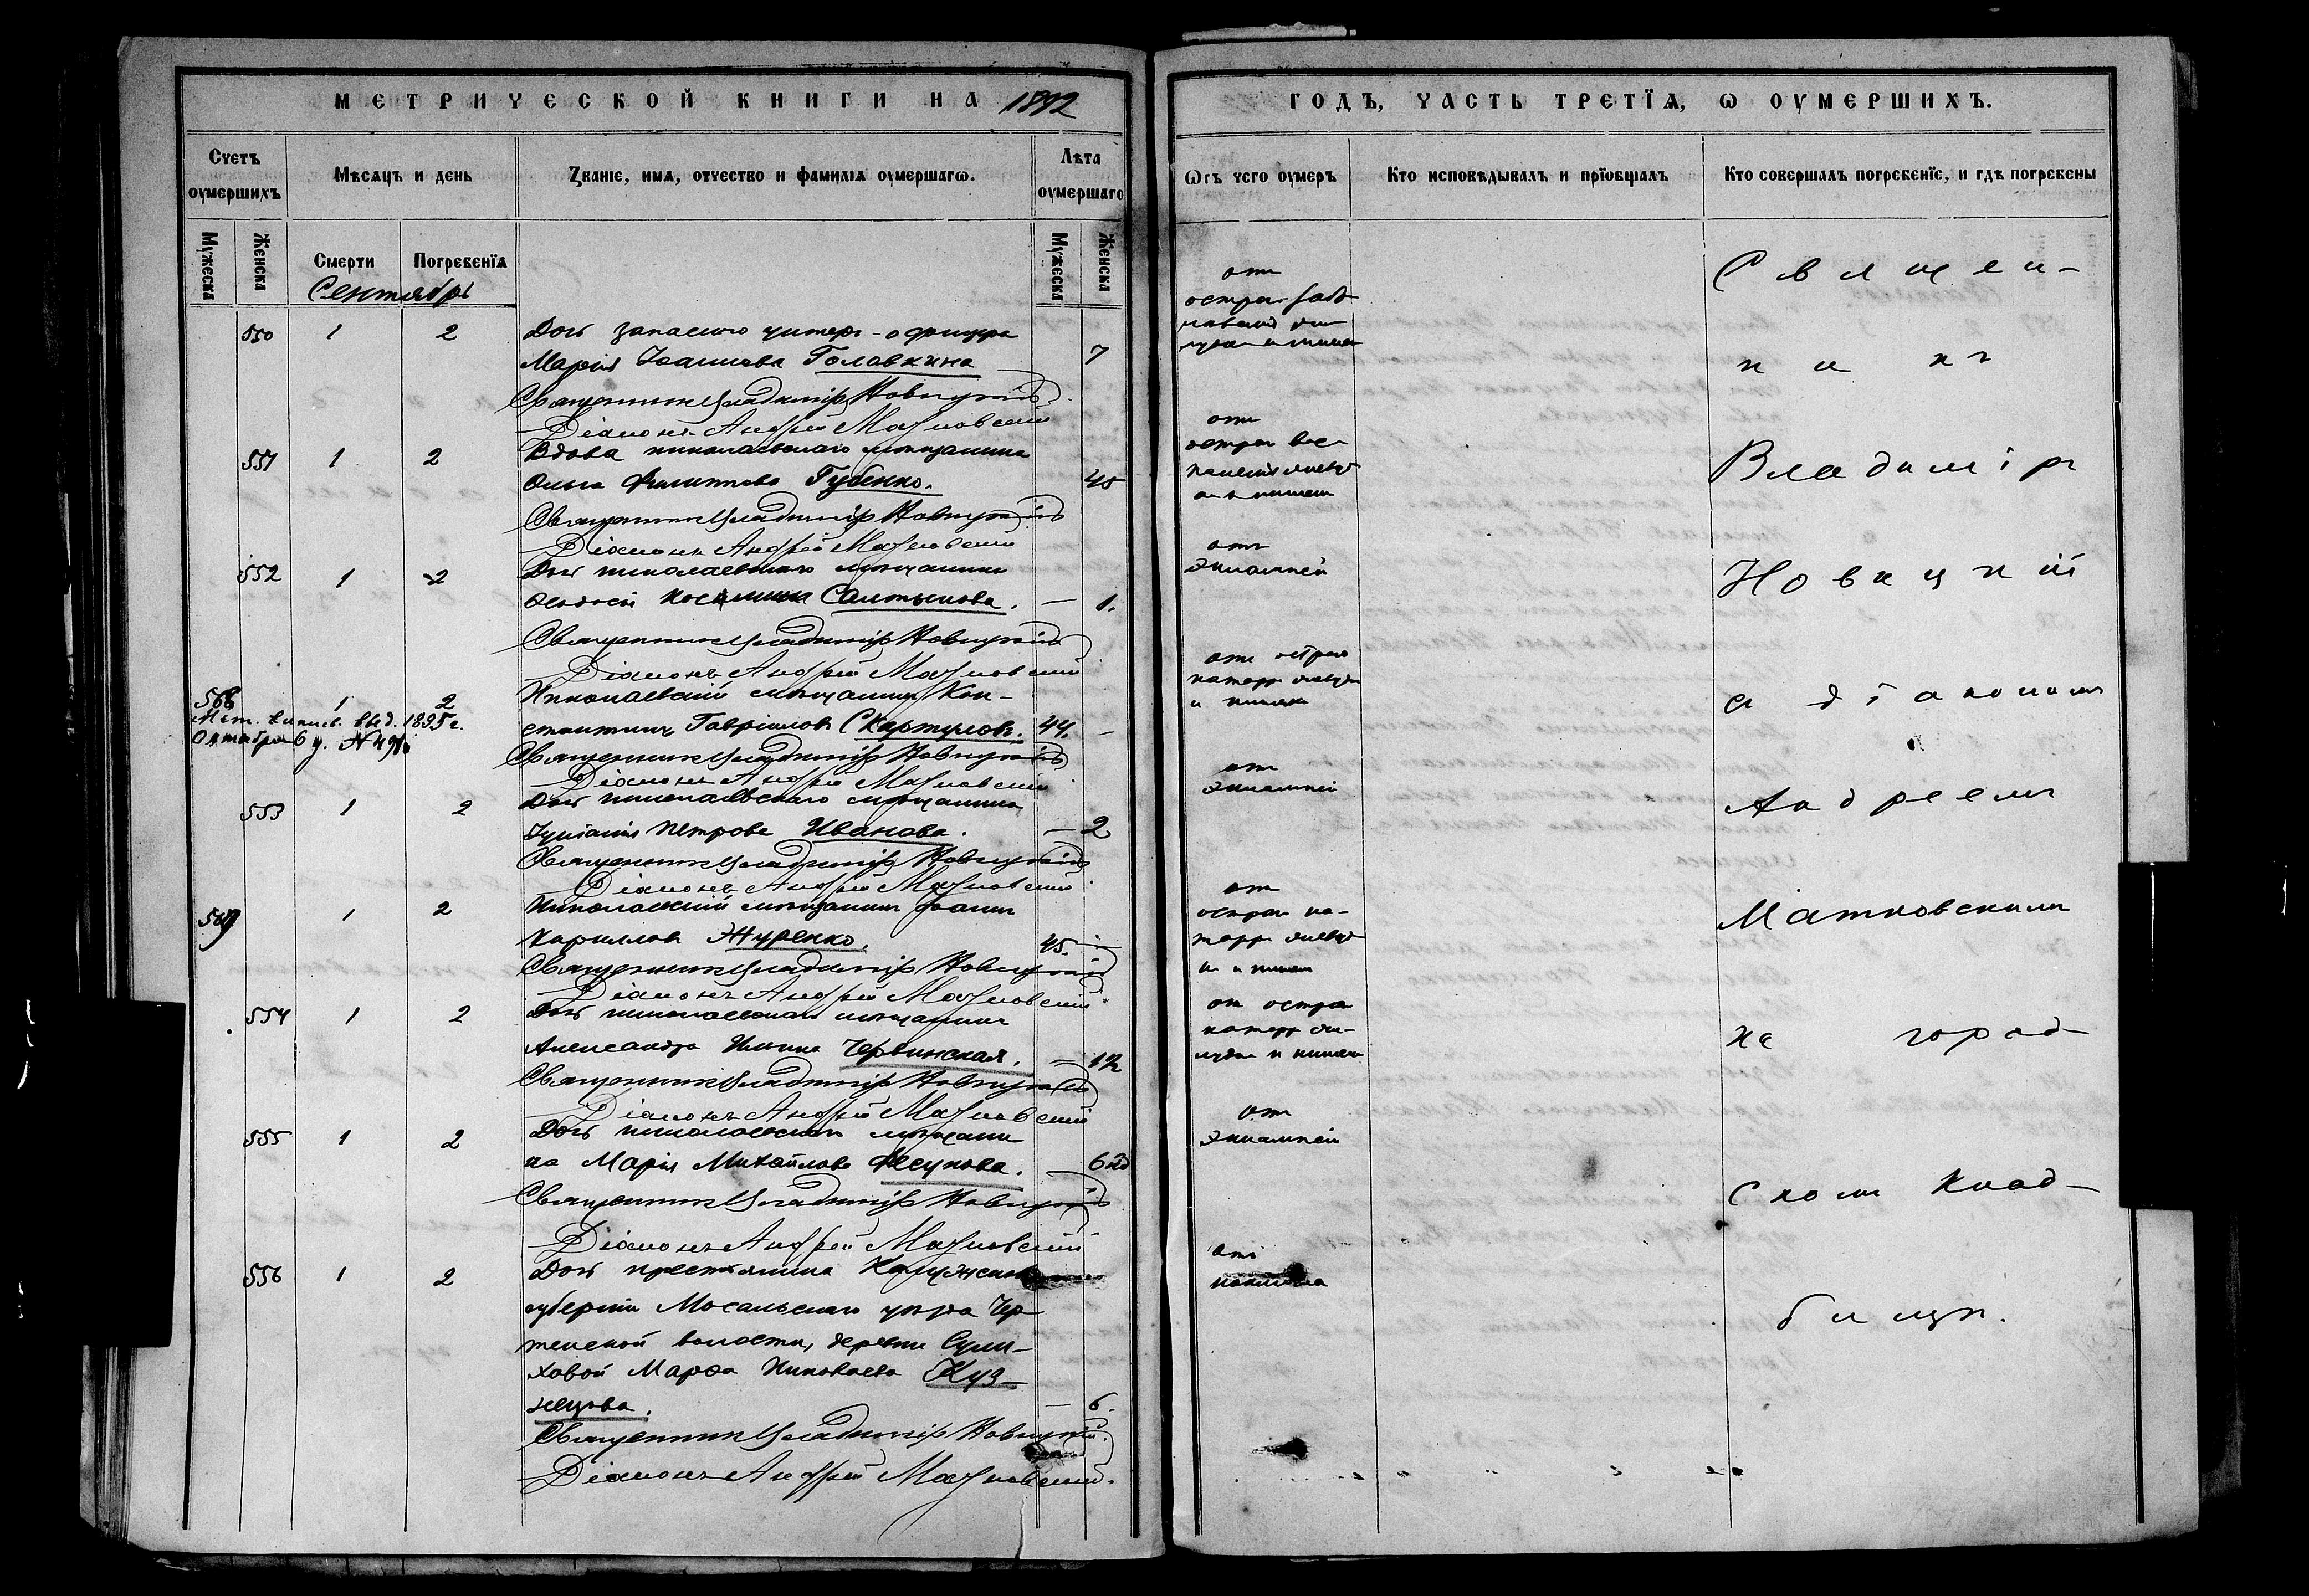 МЕТРИЧЕСКОЙ КНИГИ НА 1892
Счетъ оумершихъ
Мѣсяцъ и день
Званіе, имя, отчество и фамилія оумершагѡ.
Лѣта оумершаго
Мужеска
Женска
Смерти
Погребенія
Мужеска
Женска
Сентябрь
550 1 2 Дочь запаснаго унтеръ-офицера
Марія Іоаннова Головкина 7
Священникъ Владиміръ Новицкій
Діаконъ Андрей Матковскій
551 1 2 Вдова николаевскаго мѣщанина
Ольга Филиппова Губенко. 45
Священникъ Владиміръ Новицкій
Діаконъ Андрей Матковскій
552 1 2 Дочь николаевскаго мѣщанина
Салтыкова. — 1.
Священникъ Владиміръ Новицкій
Діаконъ Андрей Матковскій
568 1 2 Николаевскій мѣщанинъ Кон-
Мет. выпис. выд. 1895 г.
стантинъ Гавріиловъ Скартуловъ. 44. —
Октября 6 д.
Священникъ Владиміръ Новицкій
Діаконъ Андрей Матковскій
553 1 2 Дочь николаевскаго мѣщанина
Іуліанія Петрова Иванова. — 2
Священникъ Владиміръ Новицкій
Діаконъ Андрей Матковскій
569 1 2 Николаевскій мѣщанинъ Іоаннъ
Кириловъ Журенко. 45. —
Священникъ Владиміръ Новицкій
Діаконъ Андрей Матковскій
554 1 2 Дочь николаевскаго мѣщанина
Александра Ильина Червинская. — 12
Священникъ Владиміръ Новицкій
Діаконъ Андрей Матковскій
555 1 2 Дочь николаевскаго мѣщани
на Марія Михайлова Фесунова. — 6
Священникъ Владиміръ Новицкій
Діаконъ Андрей Матковскій
556 1 2 Дочь крестьянина Калужской
губерніи Мосальскаго уѣзда Чер
тенской волости, деревни Сули-
ховой Марѳа Николаева Куз-
нецова. — 6.
Священникъ Владиміръ Новицкій.
Діаконъ Андрей Матковскій.
ГОДЪ, ЧАСТЬ ТРЕТІЯ, Ѡ ОУМЕРШИХЪ.
Ѡтъ чего оумеръ
Кто исповѣдывалъ и пріобщалъ
Кто совершалъ погребеніе, и гдѣ погребены
отъ
отъ
отъ
эклампсіи
отъ остраго
катарра желудка
и кишекъ
отъ
эклампсіи
отъ
остраго ка-
тарра желуд
ка и кишекъ
отъ остраго
катарра же-
лудка и кишекъ
отъ
эклампсіи
отъ
коклюша
Священ-
никъ
Владиміръ
Новицкій
съ діакономъ
Андреемъ
Матковскимъ
на город-
скомъ клад-
бищѣ.